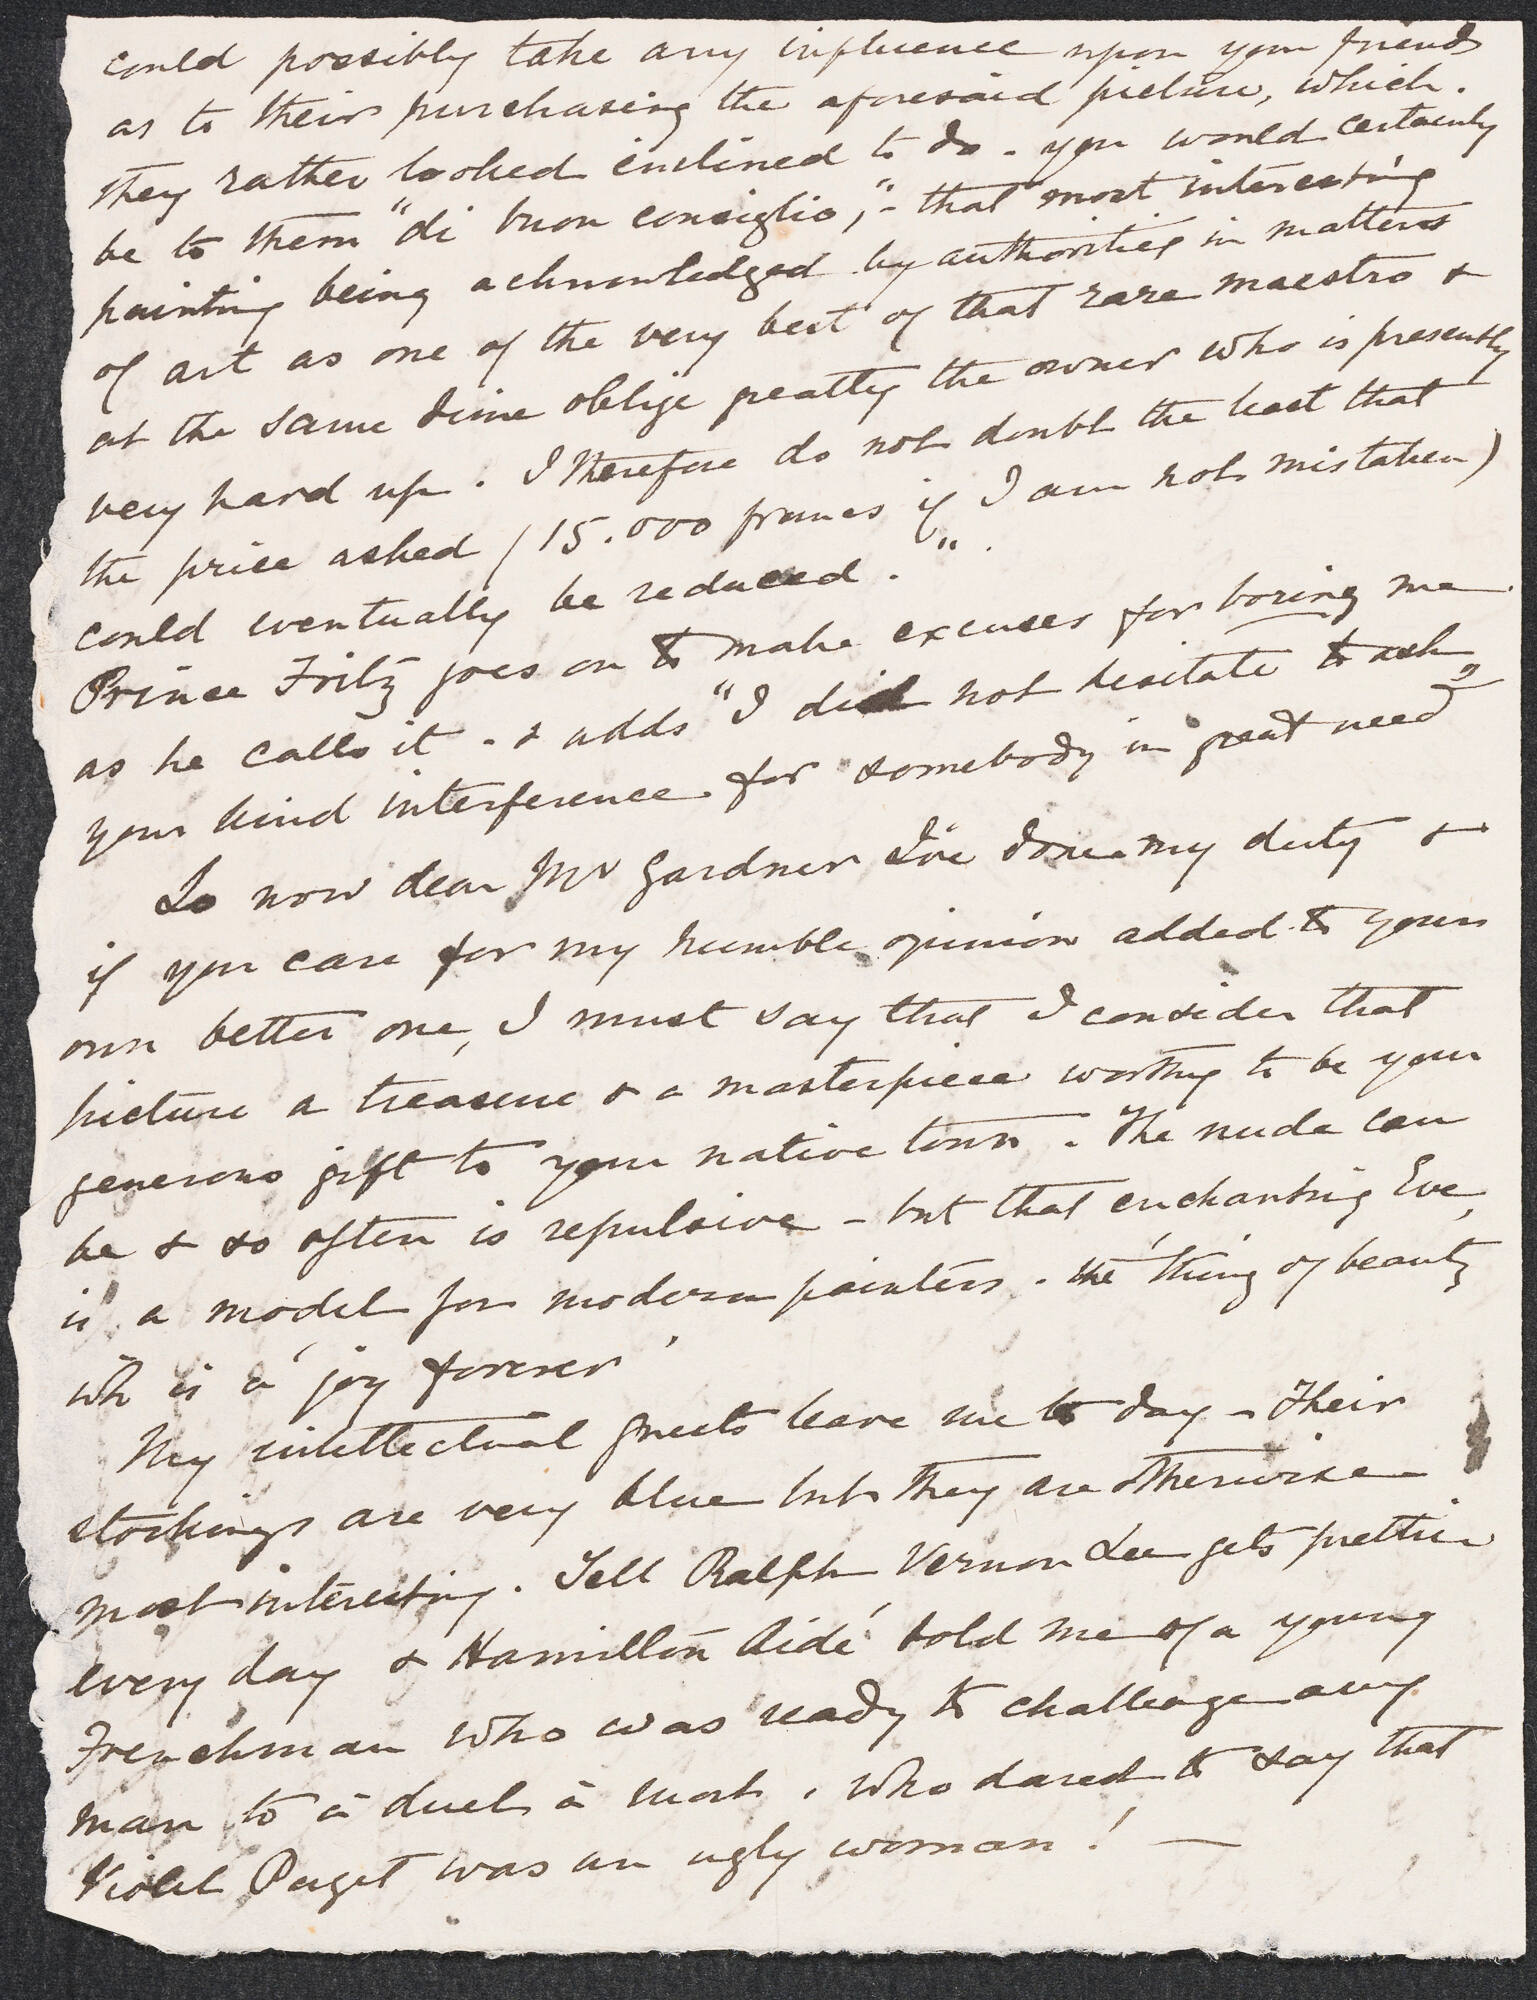 could possibly take any influence upon your friends
as to their purchasing the aforesaid picture, which.
they rather looked inclined to do - you would certainly
be to them "di buon consiglio," - that most interesting
painting being acknowledged by authorities in matters
of art as one of the very best of that rare maestro &
at the same time oblige greatly the owner who is presently
very hard up. I therefore do not doubt the least that
the price asked (15.000 francs if I am not mistaken)
could eventually be reduced."
Prince Fritz goes on to make excuses for boring me
as he calls it - & adds "I did not hesitate to ask
your kind interference for somebody in great need"
So now dear Mr Gardner I've done my duty &
if you care for my humble opinion added to your
own better one, I must say that I consider that
picture a treasure & a masterpiece worthy to be your
generous gift to your native town. The nude can
be & so often is repulsive - but that enchanting Eve,
is a model for modern painters. the 'thing of beauty
wh is a 'joy forever'
My intellectual guests leave me to day - Their
stockings are very blue but they are otherwise
most interesting. Tell Ralph, Vernon Lee gets prettier
every day & Hamilton Aidé told me of a young
Frenchman who was ready to challenge any
man to a duel à mort, who dared to say that
Violet Paget was an ugly woman! —